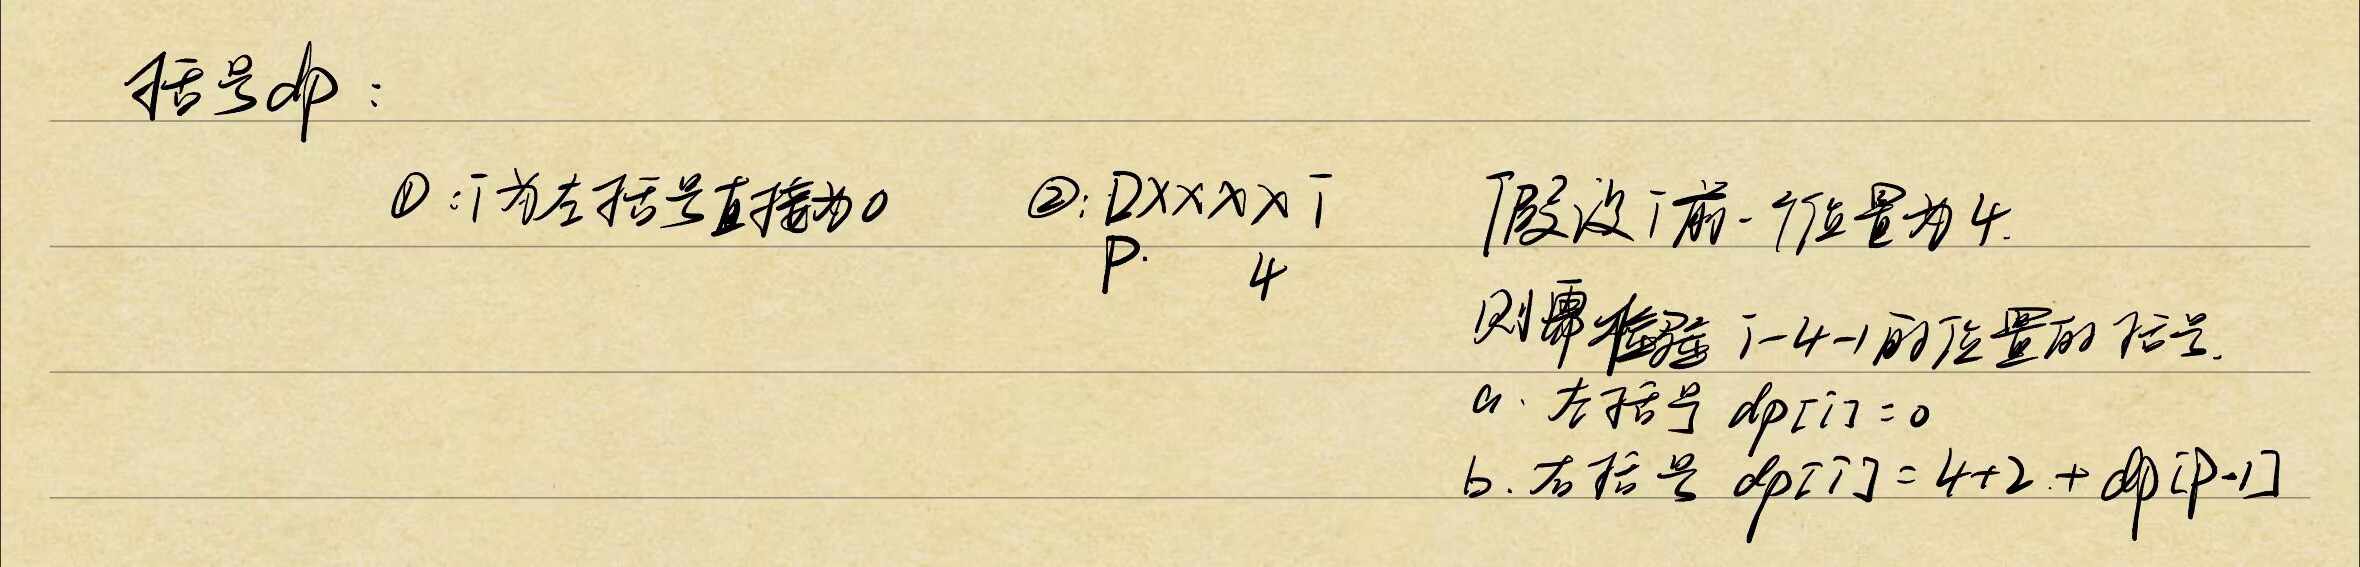 括号dp：
①：i为左括号直接为0 ②：□xxxx i 假设i前一个位置为4.
P. 4
则需检验 i-4-1的位置的括号.
a. 左括号 dp[i]=0
b. 右括号 dp[i]=4+2+dp[P-1]